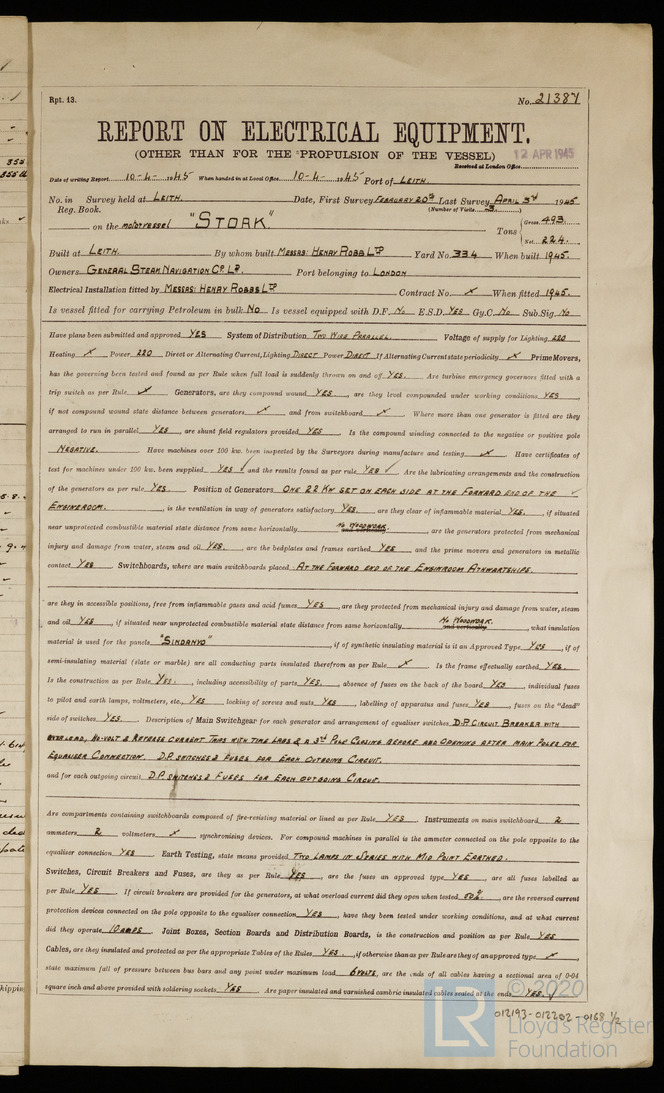 Rpt. 13. No. 21387
REPORT ON ELECTRICAL EQUIPMENT.
(OTHER THAN FOR THE PROPULSION OF THE VESSEL) 12 APR 1945
Received at London Office
Date of writing Report 10-4- 1945 When handed in at Local Office 10-4- 1945 Port of LEITH.
No. in Survey held at LEITH. Date, First Survey FEBRUARY 20th Last Survey APRIL 3rd 1945
Reg. Book. (Number of Visits 3 )
on the motorvessel "STORK" Tons { Gross 493. Net 224.
Built at LEITH. By whom built MESSRS: HENRY ROBB LTD Yard No. 334 When built 1945.
Owners GENERAL STEAM NAVIGATION CO. LD. Port belonging to LONDON
Electrical Installation fitted by MESSRS: HENRY ROBB LTD Contract No. x When fitted 1945.
Is vessel fitted for carrying Petroleum in bulk NO Is vessel equipped with D.F. NO E.S.D. YES Gy.C. NO Sub.Sig. NO
Have plans been submitted and approved YES System of Distribution TWO WIRE PARALLEL. Voltage of supply for Lighting 220
Heating x Power 220 Direct or Alternating Current, Lighting DIRECT Power DIRECT If Alternating Current state periodicity x Prime Movers,
has the governing been tested and found as per Rule when full load is suddenly thrown on and off YES. Are turbine emergency governors fitted with a
trip switch as per Rule x Generators, are they compound wound YES, are they level compounded under working conditions YES,
if not compound wound state distance between generators x and from switchboard x Where more than one generator is fitted are they
arranged to run in parallel YES, are shunt field regulators provided YES. Is the compound winding connected to the negative or positive pole
NEGATIVE. Have machines over 100 kw. been inspected by the Surveyors during manufacture and testing x Have certificates of
test for machines under 100 kw. been supplied YES ✓ and the results found as per rule YES ✓ Are the lubricating arrangements and the construction
of the generators as per rule YES. Position of Generators ONE 22 KW SET ON EACH SIDE AT THE FORWARD END OF THE ✓
ENGINEROOM., is the ventilation in way of generators satisfactory YES. are they clear of inflammable material YES., if situated
near unprotected combustible material state distance from same horizontally NO WOODWORK. are the generators protected from mechanical
injury and damage from water, steam and oil YES., are the bedplates and frames earthed YES and the prime movers and generators in metallic
contact YES Switchboards, where are main switchboards placed AT THE FORWARD END OF THE ENGINROOM ATHWARTSHIPS.
are they in accessible positions, free from inflammable gases and acid fumes YES, are they protected from mechanical injury and damage from water, steam
and oil YES, if situated near unprotected combustible material state distance from same horizontally and vertically NO WOODWORK., what insulation
material is used for the panels "SINDANYO", if of synthetic insulating material is it an Approved Type YES, if of
semi-insulating material (slate or marble) are all conducting parts insulated therefrom as per Rule x Is the frame effectually earthed YES.
Is the construction as per Rule YES., including accessibility of parts YES., absence of fuses on the back of the board YES, individual fuses
to pilot and earth lamps, voltmeters, etc., YES locking of screws and nuts YES, labelling of apparatus and fuses YES, fuses on the "dead"
side of switches YES. Description of Main Switchgear for each generator and arrangement of equaliser switches D.P. CIRCUIT BREAKER WITH
OVERLOAD, NO-VOLT & REVERSE CURRENT TRIPS WITH TIME LAGS & A 3rd POLE CLOSING BEFORE AND OPENING AFTER MAIN POLES FOR
EQUALISER CONNECTION. D.P. SWITCHES & FUSES FOR EACH OUTGOING CIRCUIT.
and for each outgoing circuit D.P. SWITCHES & FUSES FOR EACH OUTGOING CIRCUIT.
Are compartments containing switchboards composed of fire-resisting material or lined as per Rule YES Instruments on main switchboard 2
ammeters 2 voltmeters x synchronising devices. For compound machines in parallel is the ammeter connected on the pole opposite to the
equaliser connection YES Earth Testing, state means provided TWO LAMPS IN SERIES WITH MID POINT EARTHED.
Switches, Circuit Breakers and Fuses, are they as per Rule YES, are the fuses an approved type YES, are all fuses labelled as
per Rule YES. If circuit breakers are provided for the generators, at what overload current did they open when tested 50%, are the reversed current
protection devices connected on the pole opposite to the equaliser connection YES, have they been tested under working conditions, and at what current
did they operate 10AMPS Joint Boxes, Section Boards and Distribution Boards, is the construction and position as per Rule YES
Cables, are they insulated and protected as per the appropriate Tables of the Rules YES, if otherwise than as per Rule are they of an approved type x,
state maximum fall of pressure between bus bars and any point under maximum load 6VOLTS, are the ends of all cables having a sectional area of 0·04
square inch and above provided with soldering sockets YES Are paper insulated and varnished cambric insulated cables sealed at the ends YES. ✓
© 2020
012193-012202-0168 1/2
LR
Lloyd's Register
Foundation